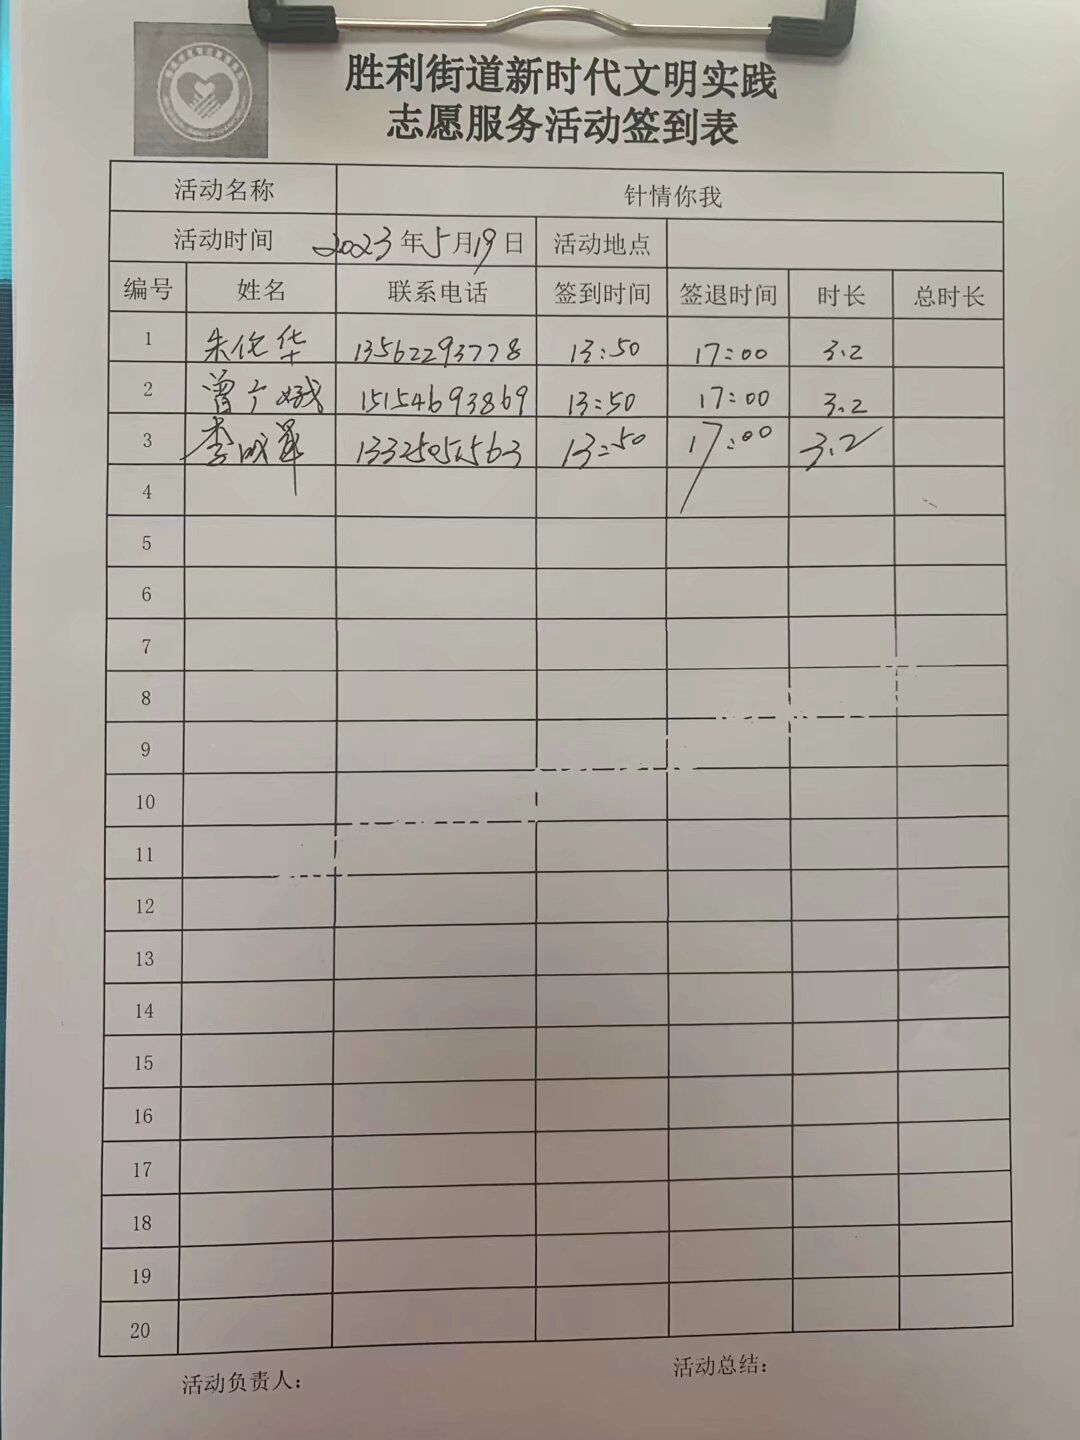 胜利街道新时代文明实践
志愿服务活动签到表
活动名称 针情你我
活动时间 2023年5月19日 活动地点
编号 姓名 联系电话 签到时间 签退时间 时长 总时长
1 朱伦华 13562293778 13:50 17:00 3.2
2 曾广娥 15154693869 13:50 17:00 3.2
3 李成 13325051563 13:50 17:00 3.2
4
5
6
7
8
9
10
11
12
13
14
15
16
17
18
19
20
活动负责人： 活动总结：